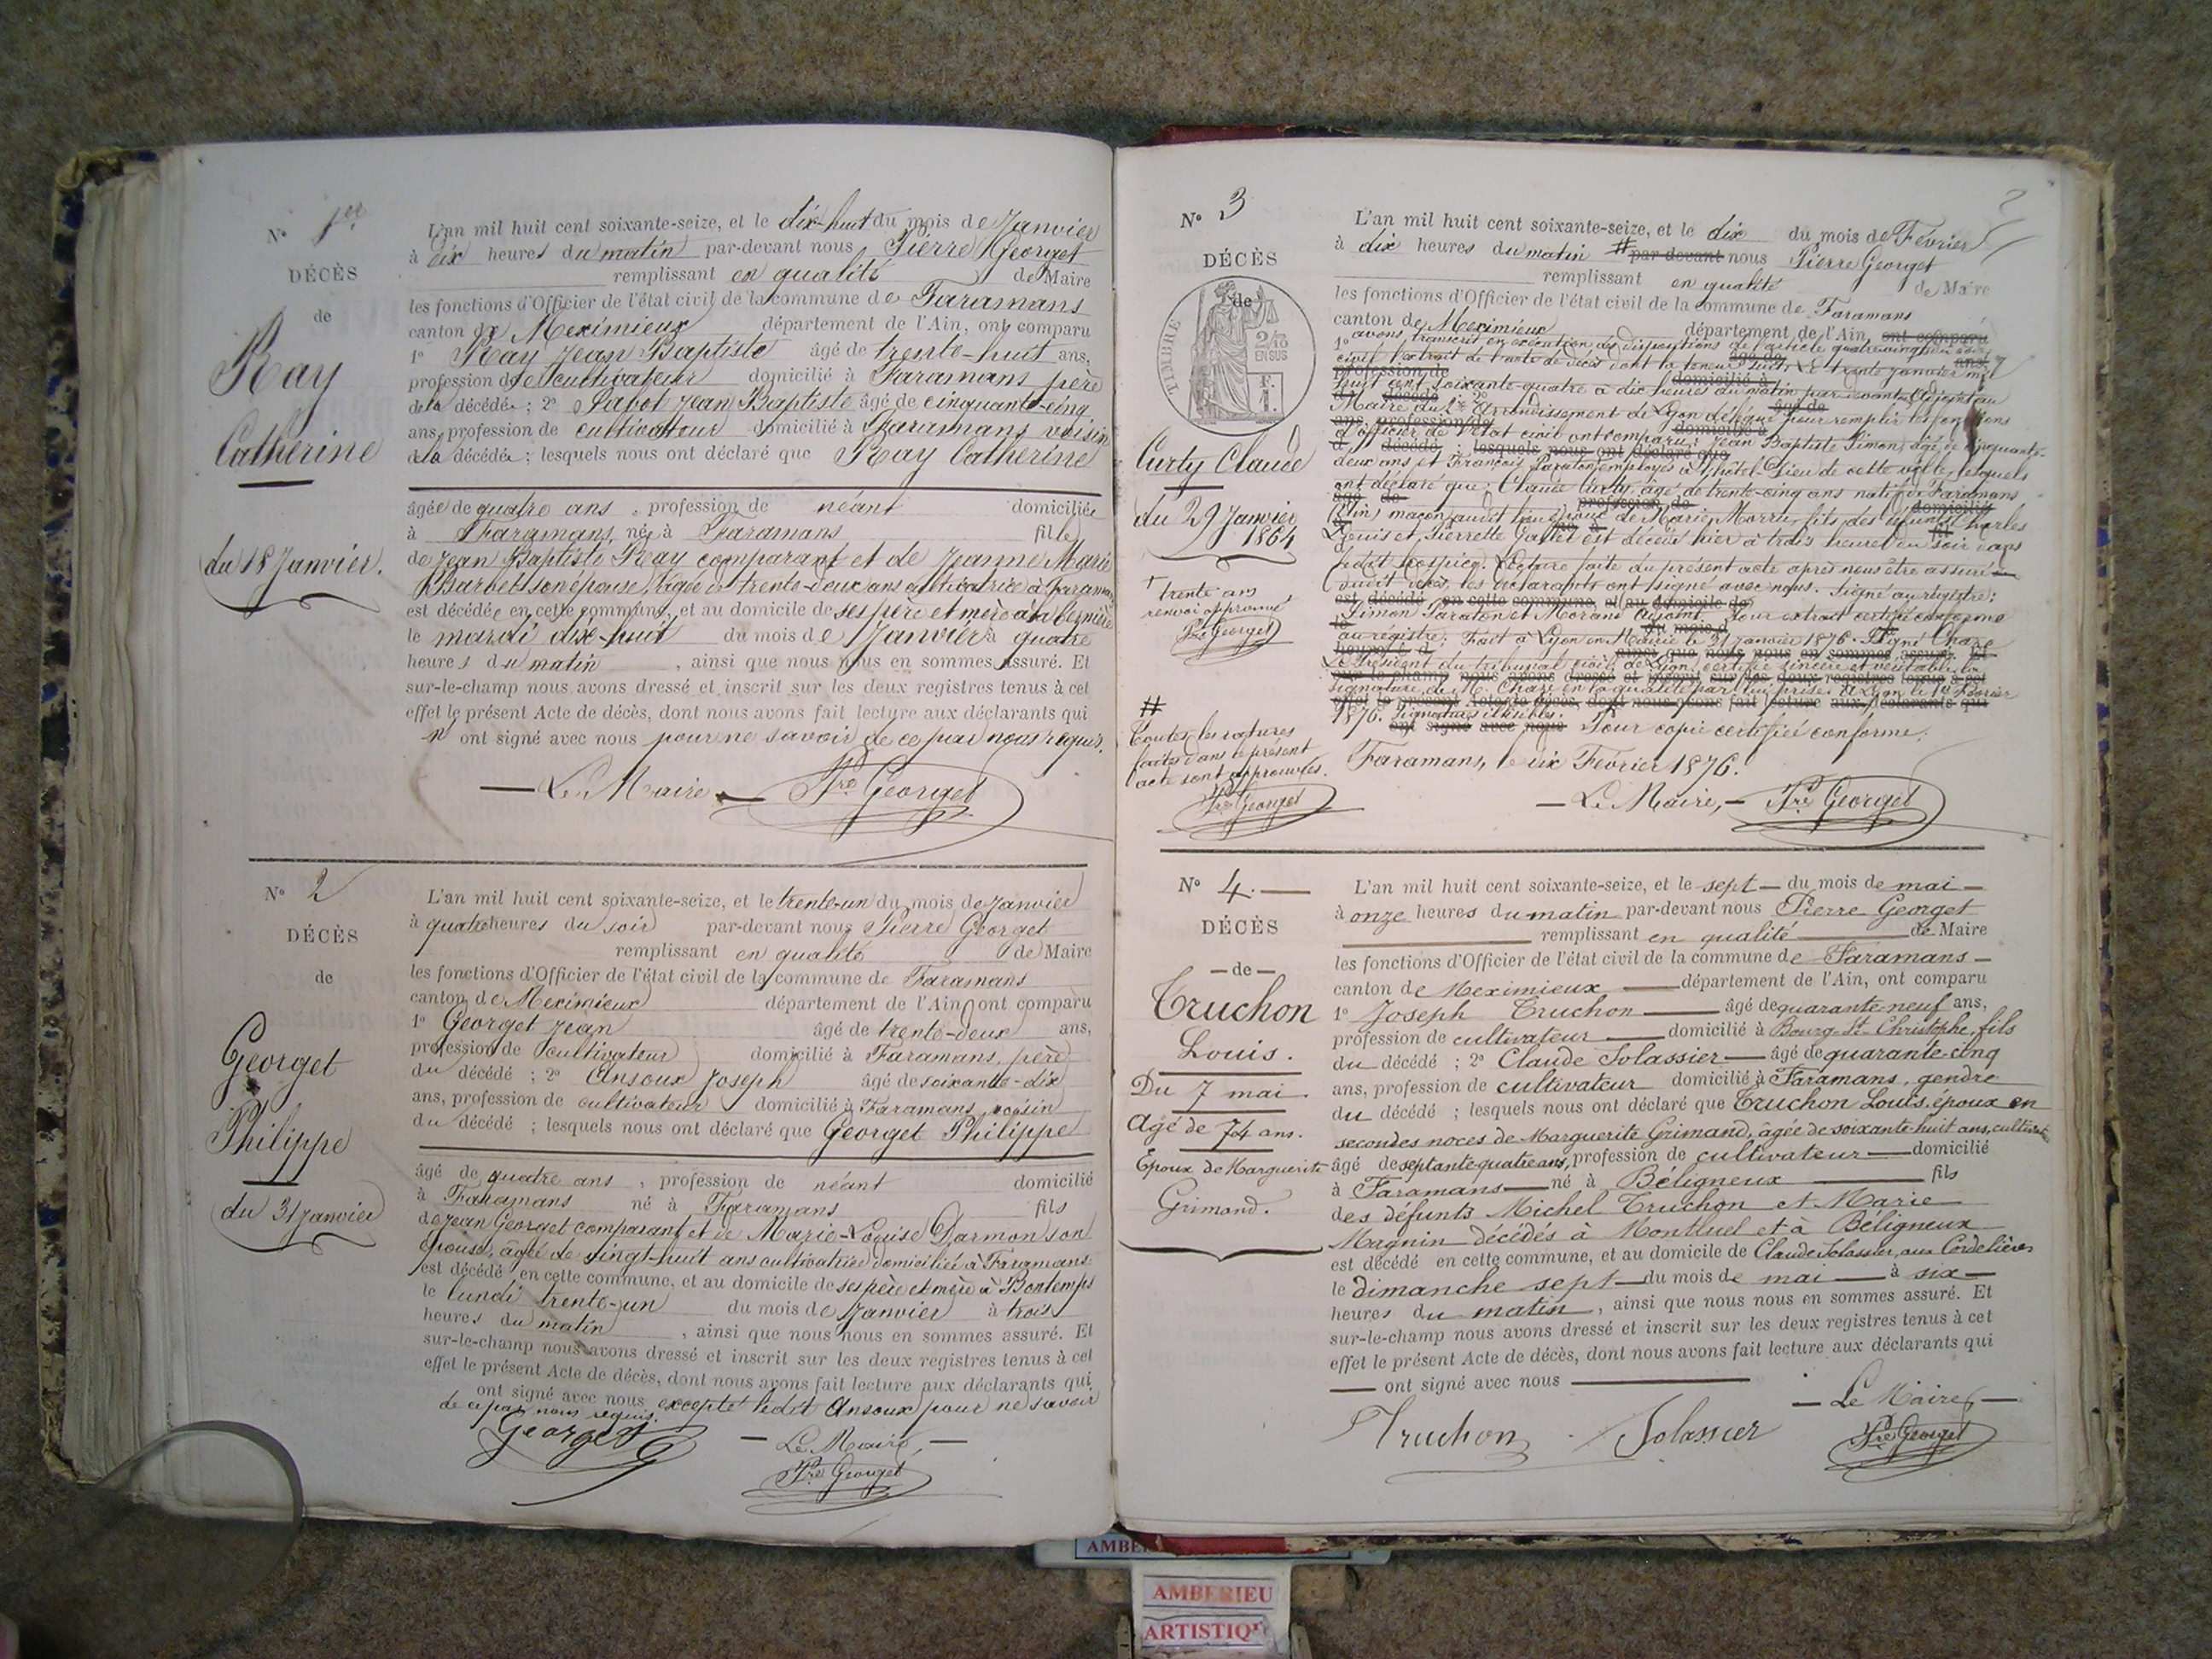 N° 1er
DÉCÈS
de
Ray
Catherine
du 18 Janvier.
L'an mil huit cent soixante-seize, et le dix-huit du mois de Janvier
à dix heures du matin par-devant nous Pierre Georget
remplissant en qualité de Maire
les fonctions d'Officier de l'état civil de la commune de Faramans
canton de Meximieux département de l'Ain, ont comparu
1° Ray Jean Baptiste âgé de trente-huit ans,
profession de cultivateur domicilié à Faramans père
de la décédée ; 2° Jean Baptiste âgé de cinquante-cinq
ans, profession de cultivateur domicilié à Faramans voisin
de la décédée ; lesquels nous ont déclaré que Ray Catherine
âgée de quatre ans, profession de néant domiciliée
à Faramans, née à Faramans fille
de Jean Baptiste Ray comparant et de Jeanne Marie
Barbet son épouse, âgée de trente-deux ans cultivatrice à Faramans
est décédée en cette commune, et au domicile de ses père et mère à la
le mardi dix-huit du mois de Janvier à quatre
heures du matin, ainsi que nous nous en sommes assuré. Et
sur-le-champ nous avons dressé et inscrit sur les deux registres tenus à cet
effet le présent Acte de décès, dont nous avons fait lecture aux déclarants qui
n' ont signé avec nous pour ne savoir de ce par nous requis.
— Le Maire — Pre Georget
N° 2
DÉCÈS
de
Georget
Philippe
du 31 janvier
L'an mil huit cent soixante-seize, et le trente-un du mois de Janvier
à quatre heures du soir par-devant nous Pierre Georget
remplissant en qualité de Maire
les fonctions d'Officier de l'état civil de la commune de Faramans
canton de Meximieux département de l'Ain, ont comparu
1° Georget Jean âgé de trente-deux ans,
profession de cultivateur domicilié à Faramans, père
du décédé ; 2° Ansoux Joseph âgé de soixante-dix
ans, profession de cultivateur domicilié à Faramans, voisin
du décédé ; lesquels nous ont déclaré que Georget Philippe
âgé de quatre ans, profession de néant domicilié
à Faramans né à Faramans fils
de Jean Georget comparant et de Marie-Louise Darmon son
épouse, âgée de vingt-huit ans cultivatrice domiciliée à Faramans
est décédé en cette commune, et au domicile de ses père et mère à Bontemps
le lundi trente-un du mois de Janvier à trois
heures du matin, ainsi que nous nous en sommes assuré. Et
sur-le-champ nous avons dressé et inscrit sur les deux registres tenus à cet
effet le présent Acte de décès, dont nous avons fait lecture aux déclarants qui
ont signé avec nous excepté ledit Ansoux pour ne savoir
de ce par nous requis.
Georget
— Le Maire, —
Pre Georget
2
N° 3
DÉCÈS
de
TIMBRE
2/10
EN SUS
F.
1.
Curty Claude
du 29 Janvier
1864
† trente ans
renvoi approuvé
Pre Georget
#
Toutes les ratures
faites dans le présent
acte sont approuvées.
Pre Georget
L'an mil huit cent soixante-seize, et le dix du mois de Février
à dix heures du matin # par-devant nous Pierre Georget
remplissant en qualité de Maire
les fonctions d'Officier de l'état civil de la commune de Faramans
canton de Meximieux département de l'Ain, ont comparu
1° avons transcrit en exécution des dispositions de l'article quatre-vingt du code
civil l'extrait de l'acte de décès dont la teneur suit. Le trente janvier mil
huit cent soixante-quatre à dix heures du matin, par-devant adjoint au
Maire du 2e Arrondissement de Lyon délégué pour remplir les fonctions
d'officier de l'état civil ont comparu : Jean Baptiste Simon, âgé de cinquante-
deux ans et François Paraton employés à l'hôtel-Dieu de cette ville, lesquels
ont déclaré que : Claude Curty, âgé de trente-cinq ans natif de Faramans
(Ain) maçon époux de Marie fils des défunts Charles
Denis et Pierrette est décédé hier à trois heures du soir dans
ledit hospice. Lecture faite du présent acte après nous être assuré
dudit décès, les déclarants ont signé avec nous. Signé au registre :
Simon Paraton et Morand adjoint. Pour extrait certifié conforme
au registre. Fait à Lyon en Mairie le 31 janvier 1876. Signé Chare
Le Président du tribunal civil de Lyon, certifie sincère et véritable la
signature de M. Chare en la qualité par lui prise. A Lyon le 1er Février
1876. Signatures illisibles. Pour copie certifiée conforme.
Faramans, le dix Février 1876.
— Le Maire, — Pre Georget
N° 4. —
DÉCÈS
— de —
Truchon
Louis.
Du 7 mai.
Agé de 74 ans.
Époux de Marguerite
Grimand.
L'an mil huit cent soixante-seize, et le sept — du mois de mai —
à onze heures du matin par-devant nous Pierre Georget
remplissant en qualité — de Maire
les fonctions d'Officier de l'état civil de la commune de Faramans —
canton de Meximieux — département de l'Ain, ont comparu
1° Joseph Truchon — âgé de quarante-neuf ans,
profession de cultivateur — domicilié à Bourg-St-Christophe, fils
du décédé ; 2° Claude Solassier — âgé de quarante-cinq
ans, profession de cultivateur domicilié à Faramans, gendre
du décédé ; lesquels nous ont déclaré que Truchon Louis, époux en
secondes noces de Marguerite Grimand, âgée de soixante huit ans, cultivat
âgé de septante-quatre ans, profession de cultivateur — domicilié
à Faramans — né à Béligneux — fils
des défunts Michel Truchon et Marie
Magnin décédés à Montluel et à Béligneux
est décédé en cette commune, et au domicile de Claude Solassier, aux Cordelières
le dimanche sept — du mois de mai — à six —
heures du matin, ainsi que nous nous en sommes assuré. Et
sur-le-champ nous avons dressé et inscrit sur les deux registres tenus à cet
effet le présent Acte de décès, dont nous avons fait lecture aux déclarants qui
— ont signé avec nous —
— Le Maire, —
Truchon Solassier Pre Georget
AMBERIEU
ARTISTIQ